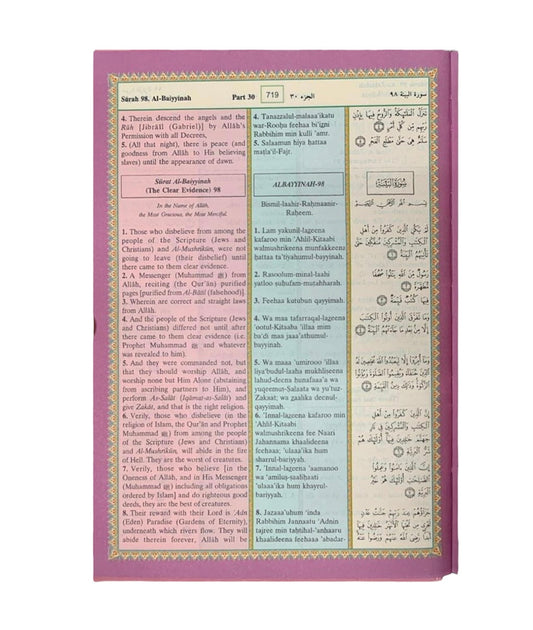 Sûrah 98. Al-Baiyyinah
Part 30
719
الجزء ٣٠
سورة البينة ٩٨
4. Therein descend the angels and the
Rûh [Jibrâîl (Gabriel)] by Allâh's
Permission with all Decrees,
5. (All that night), there is peace (and
goodness from Allâh to His believing
slaves) until the appearance of dawn.
Sûrat Al-Baiyyinah
(The Clear Evidence) 98
In the Name of Allâh,
the Most Gracious, the Most Merciful.
1. Those who disbelieve from among the
people of the Scripture (Jews and
Christians) and Al-Mushrikûn, were not
going to leave (their disbelief) until
there came to them clear evidence.
2. A Messenger (Muhammad ﷺ) from
Allâh, reciting (the Qur'ân) purified
pages [purified from Al-Bâtil (falsehood)].
3. Wherein are correct and straight laws
from Allâh.
4. And the people of the Scripture (Jews
and Christians) differed not until after
there came to them clear evidence (i.e.
Prophet Muhammad ﷺ and whatever
was revealed to him).
5. And they were commanded not, but
that they should worship Allâh, and
worship none but Him Alone (abstaining
from ascribing partners to Him), and
perform As-Salât (Iqâmat-as-Salât) and
give Zakât, and that is the right religion.
6. Verily, those who disbelieve (in the
religion of Islam, the Qur'ân and Prophet
Muhammad ﷺ) from among the people
of the Scripture (Jews and Christians)
and Al-Mushrikûn, will abide in the fire
of Hell. They are the worst of creatures.
7. Verily, those who believe [in the
Oneness of Allâh, and in His Messenger
(Muhammad ﷺ) including all obligations
ordered by Islam] and do righteous good
deeds, they are the best of creatures.
8. Their reward with their Lord is 'Adn
(Eden) Paradise (Gardens of Eternity),
underneath which rivers flow. They will
abide therein forever, Allâh will be
4. Tanazzalul-malaaa'ikatu
war-Roohu feehaa bi'igni
Rabbihim min kulli 'amr.
5. Salaamun hiya hattaa
matla'il-Fajr.
ALBAYYINAH-98
Bismil-laahir-Rahmaanir-
Raheem.
1. Lam yakunil-lageena
kafaroo min 'Ahlil-Kitaabi
walmushrikeena munfakkeena
hattaa ta'tiyahumul-bayyinah.
2. Rasoolum-minal-laahi
yatloo suhufam-mutahharah.
3. Feehaa kutubun qayyimah.
4. Wa maa tafarraqal-lageena
'ootul-Kitaaba 'illaa mim
ba'di maa jaaa'athumul-
bayyinah.
5. Wa maaa 'umirooo 'illaa
liya'budul-laaha mukhliseena
lahud-deena hunafaaa'a wa
yuqeemus-Salaata wa yu'tuz-
Zakaat; wa zaalika deenul-
qayyimah.
6. 'Innal-lageena kafaroo min
'Ahlil-Kitaabi
walmushrikeena fee Naari
Jahannama khaalideena
feehaa; 'ulaaa'ika hum
sharrul-bariyyah.
7. 'Innal-lageena 'aamanoo
wa 'amilus-saalihaati
'ulaaa'ika hum khayrul-
bariyyah.
8. Jazaaa'uhum 'inda
Rabbihim Jannaatu 'Adnin
tajree min tahtihal-'anhaaru
khaalideena feehaaa 'abadar-
تنزل الملئكة والروح فيها بإذن
ربهم من كل أمر ٤
سلم هى حتى مطلع الفجر ٥
سورة البينة
بسم الله الرحمن الرحيم
لم يكن الذين كفروا من أهل
الكتب والمشركين منفكين حتى
تأتيهم البينة ١
رسول من الله يتلوا صحفا
مطهرة ٢
فيها كتب قيمة ٣
وما تفرق الذين أوتوا الكتب
إلا من بعد ما جاءتهم البينة ٤
وما أمروا إلا ليعبدوا الله مخلصين له